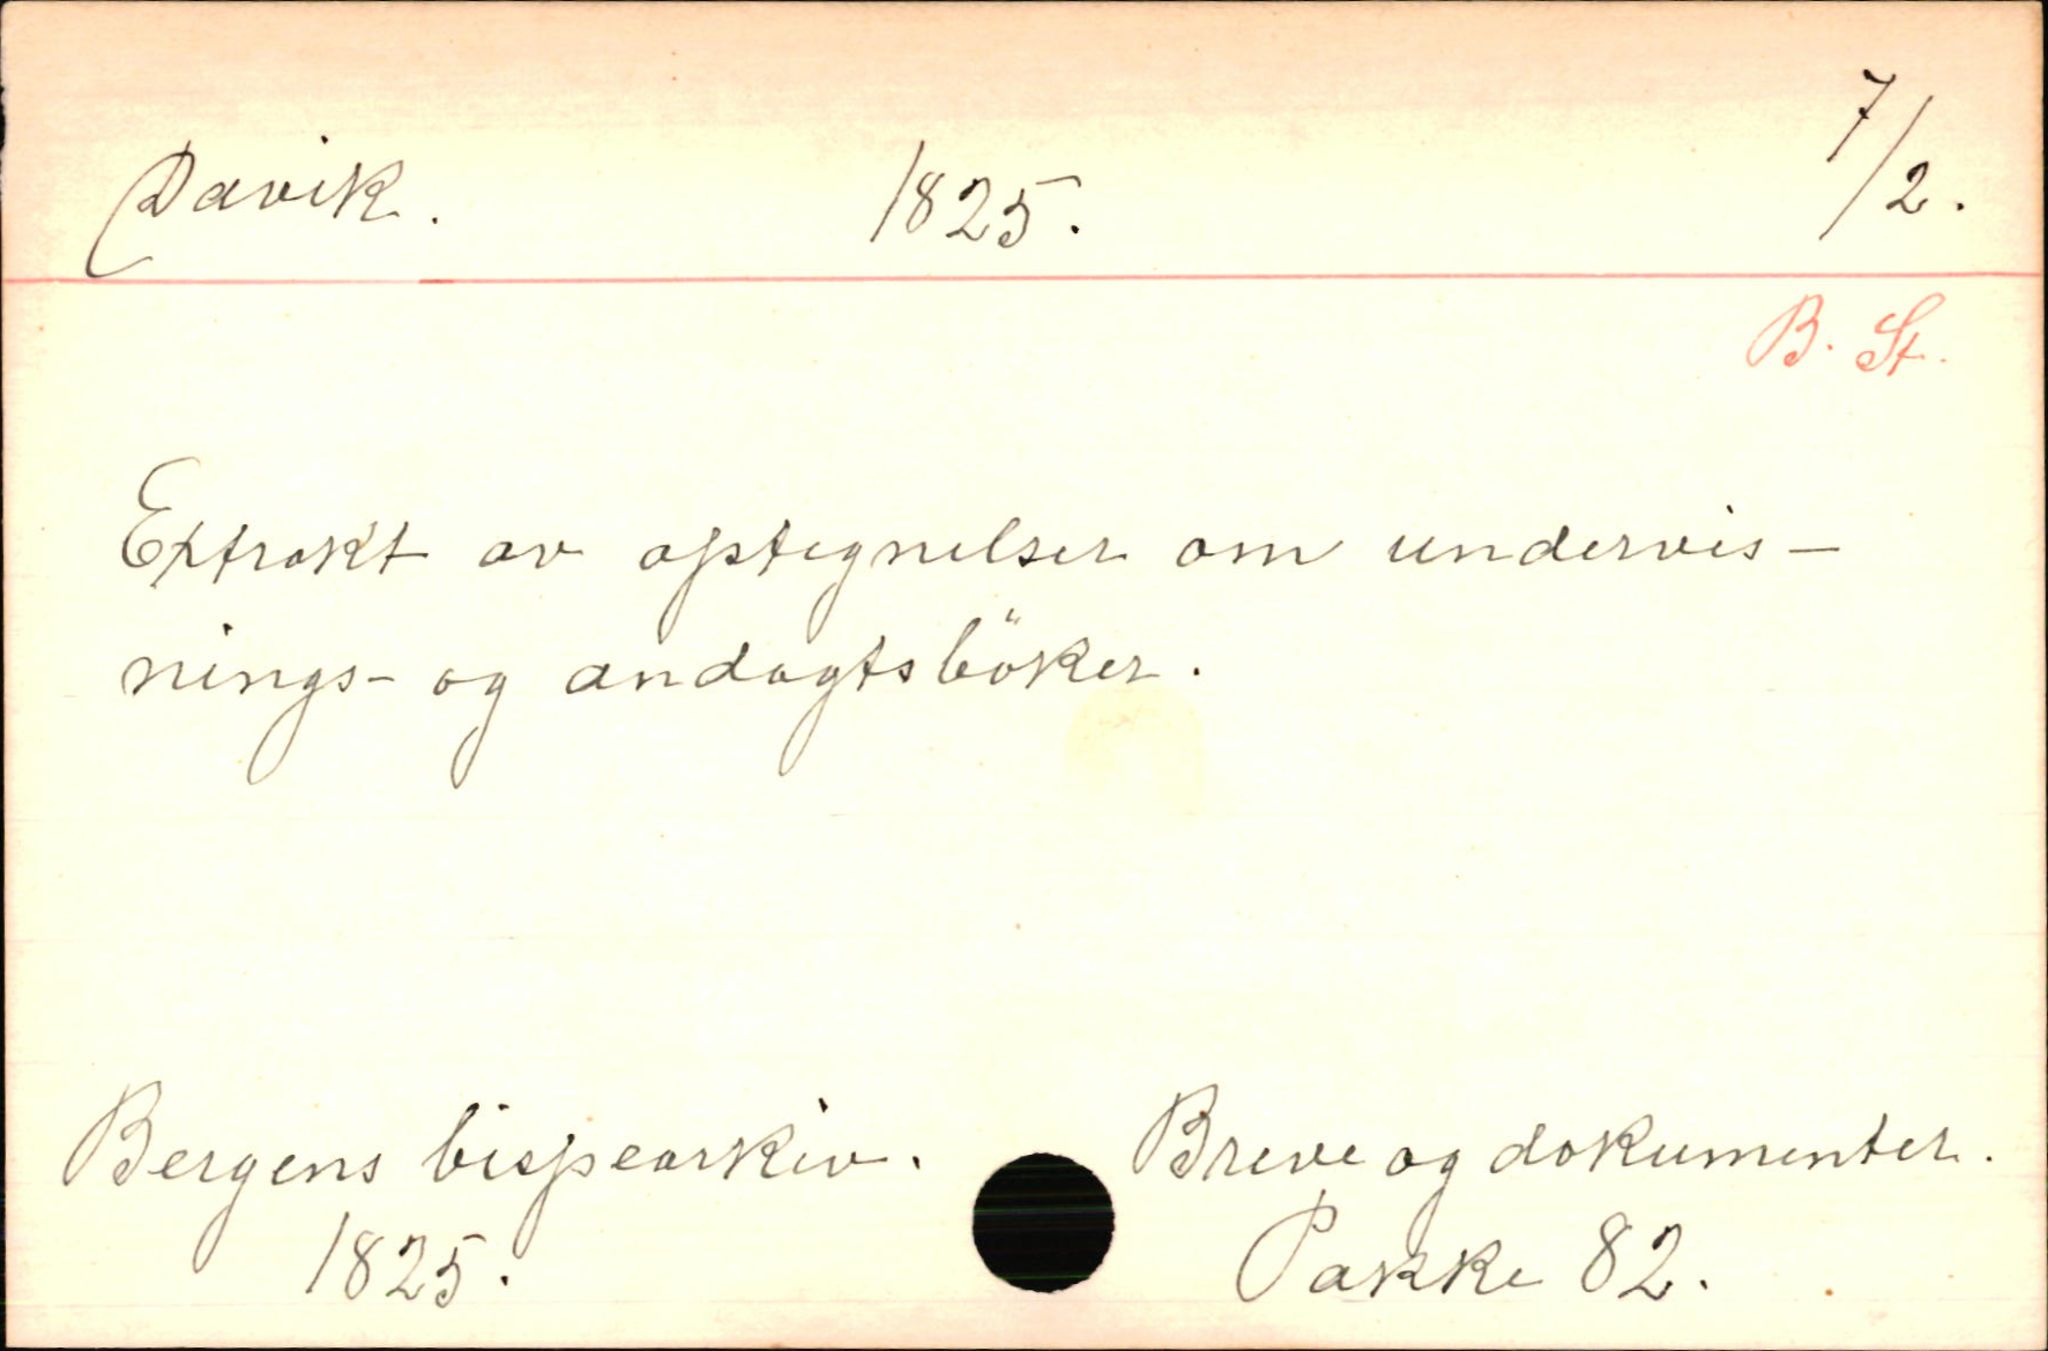 Davik. 1825. 7/2.
B. St.
Extrakt av optegnelser om undervis-
nings- og andagtsböker.
Bergens bispearkiv. Breve og dokumenter.
1825. Pakke 82.